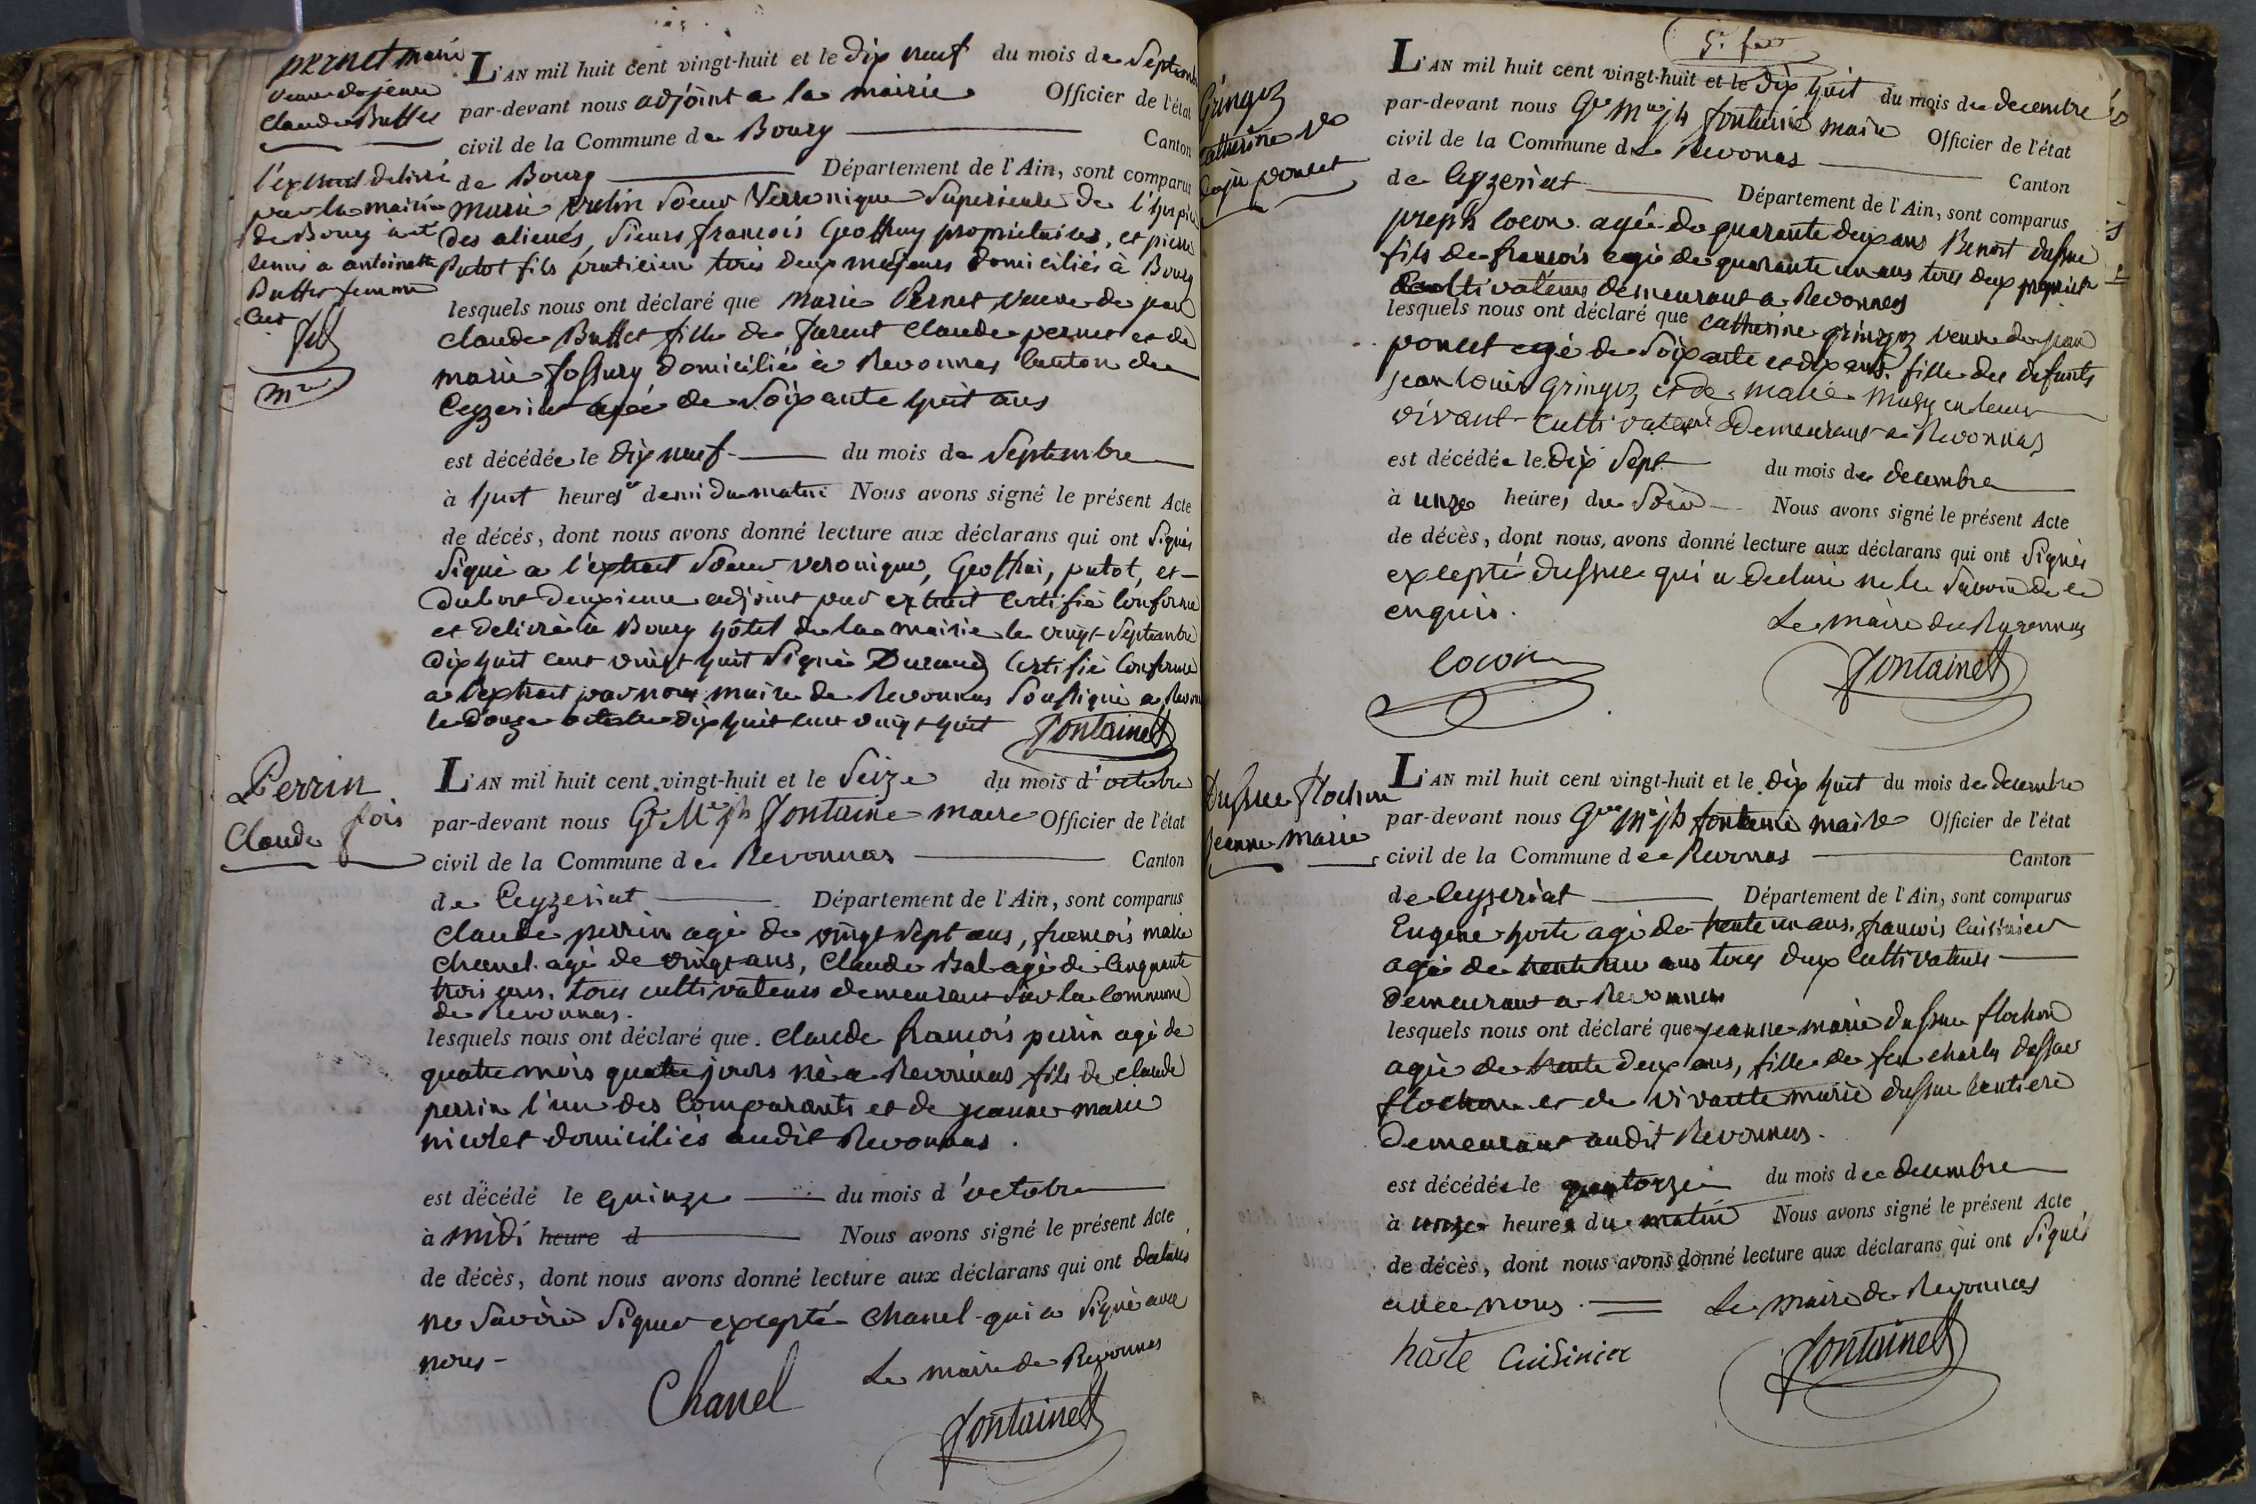 pernet marie
veuve de jean
Claude Buffet
l'extrait delivré
par la mairie
de Bourg a été
remis a antoinette
Buffet femme
L'AN mil huit cent vingt-huit et le dix neuf du mois de Septembre
par-devant nous adjoint a la mairie Officier de l'état
civil de la Commune de Bourg Canton
de Bourg Département de l'Ain, sont comparus
marie Soeur Verronique Superieure de l'hospice
des alienés, Sieurs francois Geoffray propriétaire, et pierre
Putot fils praticien tous deux majeurs domiciliés à Bourg
lesquels nous ont déclaré que marie Pernet veuve de jean
claude Buffet fille de furent Claude pernet et de
marie domiciliée à Revonnas Canton de
Ceyzeriat agée de Soixante huit ans
est décédée le dix neuf du mois de Septembre
à huit heures et demi du matin Nous avons signé le présent Acte
de décés, dont nous avons donné lecture aux déclarans qui ont signés
Signé a l'extrait Soeur veronique, Geoffrai, putot, et
deuxieme adjoint pour extrait certifié conforme
et delivré à Bourg hôtel de la mairie le vingt Septembre
dix huit cent vingt huit Signé Durand Certifié conforme
a l'extrait par nous maire de Revonnas Soussigné a Revon
le douze octobre dix huit cent vingt huit Fontaine
Perrin
Claude fois
L'AN mil huit cent vingt-huit et le Seize du mois d'octobre
par-devant nous Gd Me jh Fontaine maire Officier de l'état
civil de la Commune de Revonnas Canton
de Ceyzeriat Département de l'Ain, sont comparus
claude perrin agé de vingt Sept ans, francois marie
chanel agé de vingt ans, Claude Bal agé de Cinquante
trois ans, tous cultivateurs demeurant Sur la commune
de Revonnas.
lesquels nous ont déclaré que claude francois perrin agé de
quatre mois quatre jours né a Revonnas fils de claude
perrin l'un des Comparants et de jeanne marie
nicolet domiciliés audit Revonnas.
est décédé le quinze du mois d'octobre
à midi heure d Nous avons signé le présent Acte
de décès, dont nous avons donné lecture aux déclarans qui ont declarés
ne Savoir Signer excepté chanel qui a Signé avec
nous
Chanel Le maire de Revonnas
Fontaine
Gringoz
Catherine ve
de jn poncet
L'AN mil huit cent vingt-huit et le dix huit du mois de decembre
par-devant nous Gd Me jh fontaine maire Officier de l'état
civil de la Commune de Revonas Canton
de Ceyzeriat Département de l'Ain, sont comparus
joseph Cocon agé de quarante deux ans Benoit dussue
fils de francois agé de quarante un ans tous deux propriet
cultivateurs demeurant a Revonnas
lesquels nous ont déclaré que catherine gringoz veuve de jean
poncet agé de Soixante et dix ans, fille des defunts
jean louis Gringoz et de marie en leur
vivant Cultivateurs demeurant a Revonnas
est décédée le dix Sept du mois de decembre
à unze heures du Soir Nous avons signé le présent Acte
de décès, dont nous avons donné lecture aux déclarans qui ont Signés
excepté dussue qui a declaré ne le Savoir de ce
enquis.
Le maire de Revonnas
Cocon Fontaine
Dussue flochon
jeanne marie
L'AN mil huit cent vingt-huit et le dix huit du mois de decembre
par-devant nous Gd Me jh fontaine maire Officier de l'état
civil de la Commune de Revonas Canton
de Ceyzeriat Département de l'Ain, sont comparus
Eugene hoste agé de trente un ans, francois Cuisinier
agé de trente un ans tous deux Cultivateurs
demeurant a Revonnas
lesquels nous ont déclaré que jeanne marie dussue flochon
agée de trente deux ans, fille de feu charles dussue
flochon et de vivante marie dussue rentiere
demeurant audit Revonnas.
est décédée le quatorze du mois de decembre
à unze heures du matin Nous avons signé le présent Acte
de décès, dont nous avons donné lecture aux déclarans qui ont Signés
avec nous. Le maire de Revonnas
hoste Cuisinier Fontaine